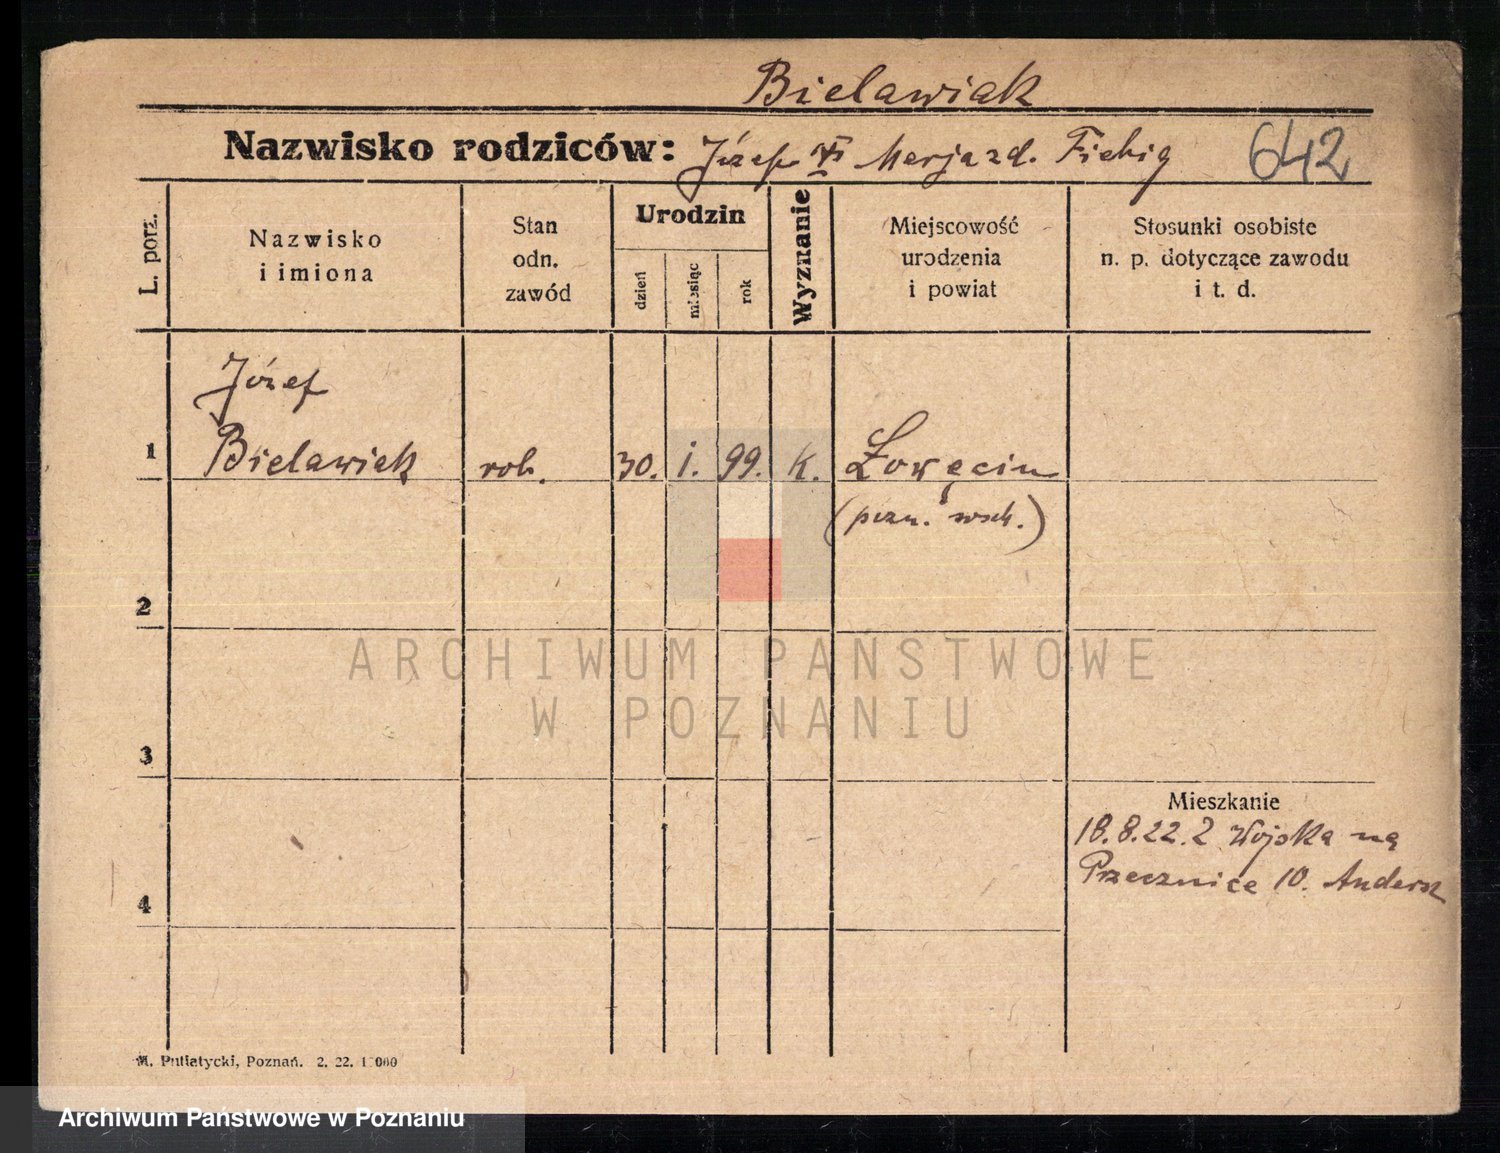 Bielawiak
Nazwisko rodziców: Józef Marja zd. Fiebig 642
L. porz.
Nazwisko
i imiona
Stan
odn.
zawód
Urodzin
dzień
miesiąc
rok
Wyznanie
Miejscowość
urodzenia
i powiat
Stosunki osobiste
n. p. dotyczące zawodu
i t. d.
Józef
1 Bielawiak rob. 30. 1. 99. k. Łowęcin
(pozn. wsch.)
2
3
Mieszkanie
18.8.22. z Wojska na
Przecznice 10. Andersz
4
ARCHIWUM PAŃSTWOWE
W POZNANIU
M. Putiatycki, Poznań. 2. 22.
Archiwum Państwowe w Poznaniu